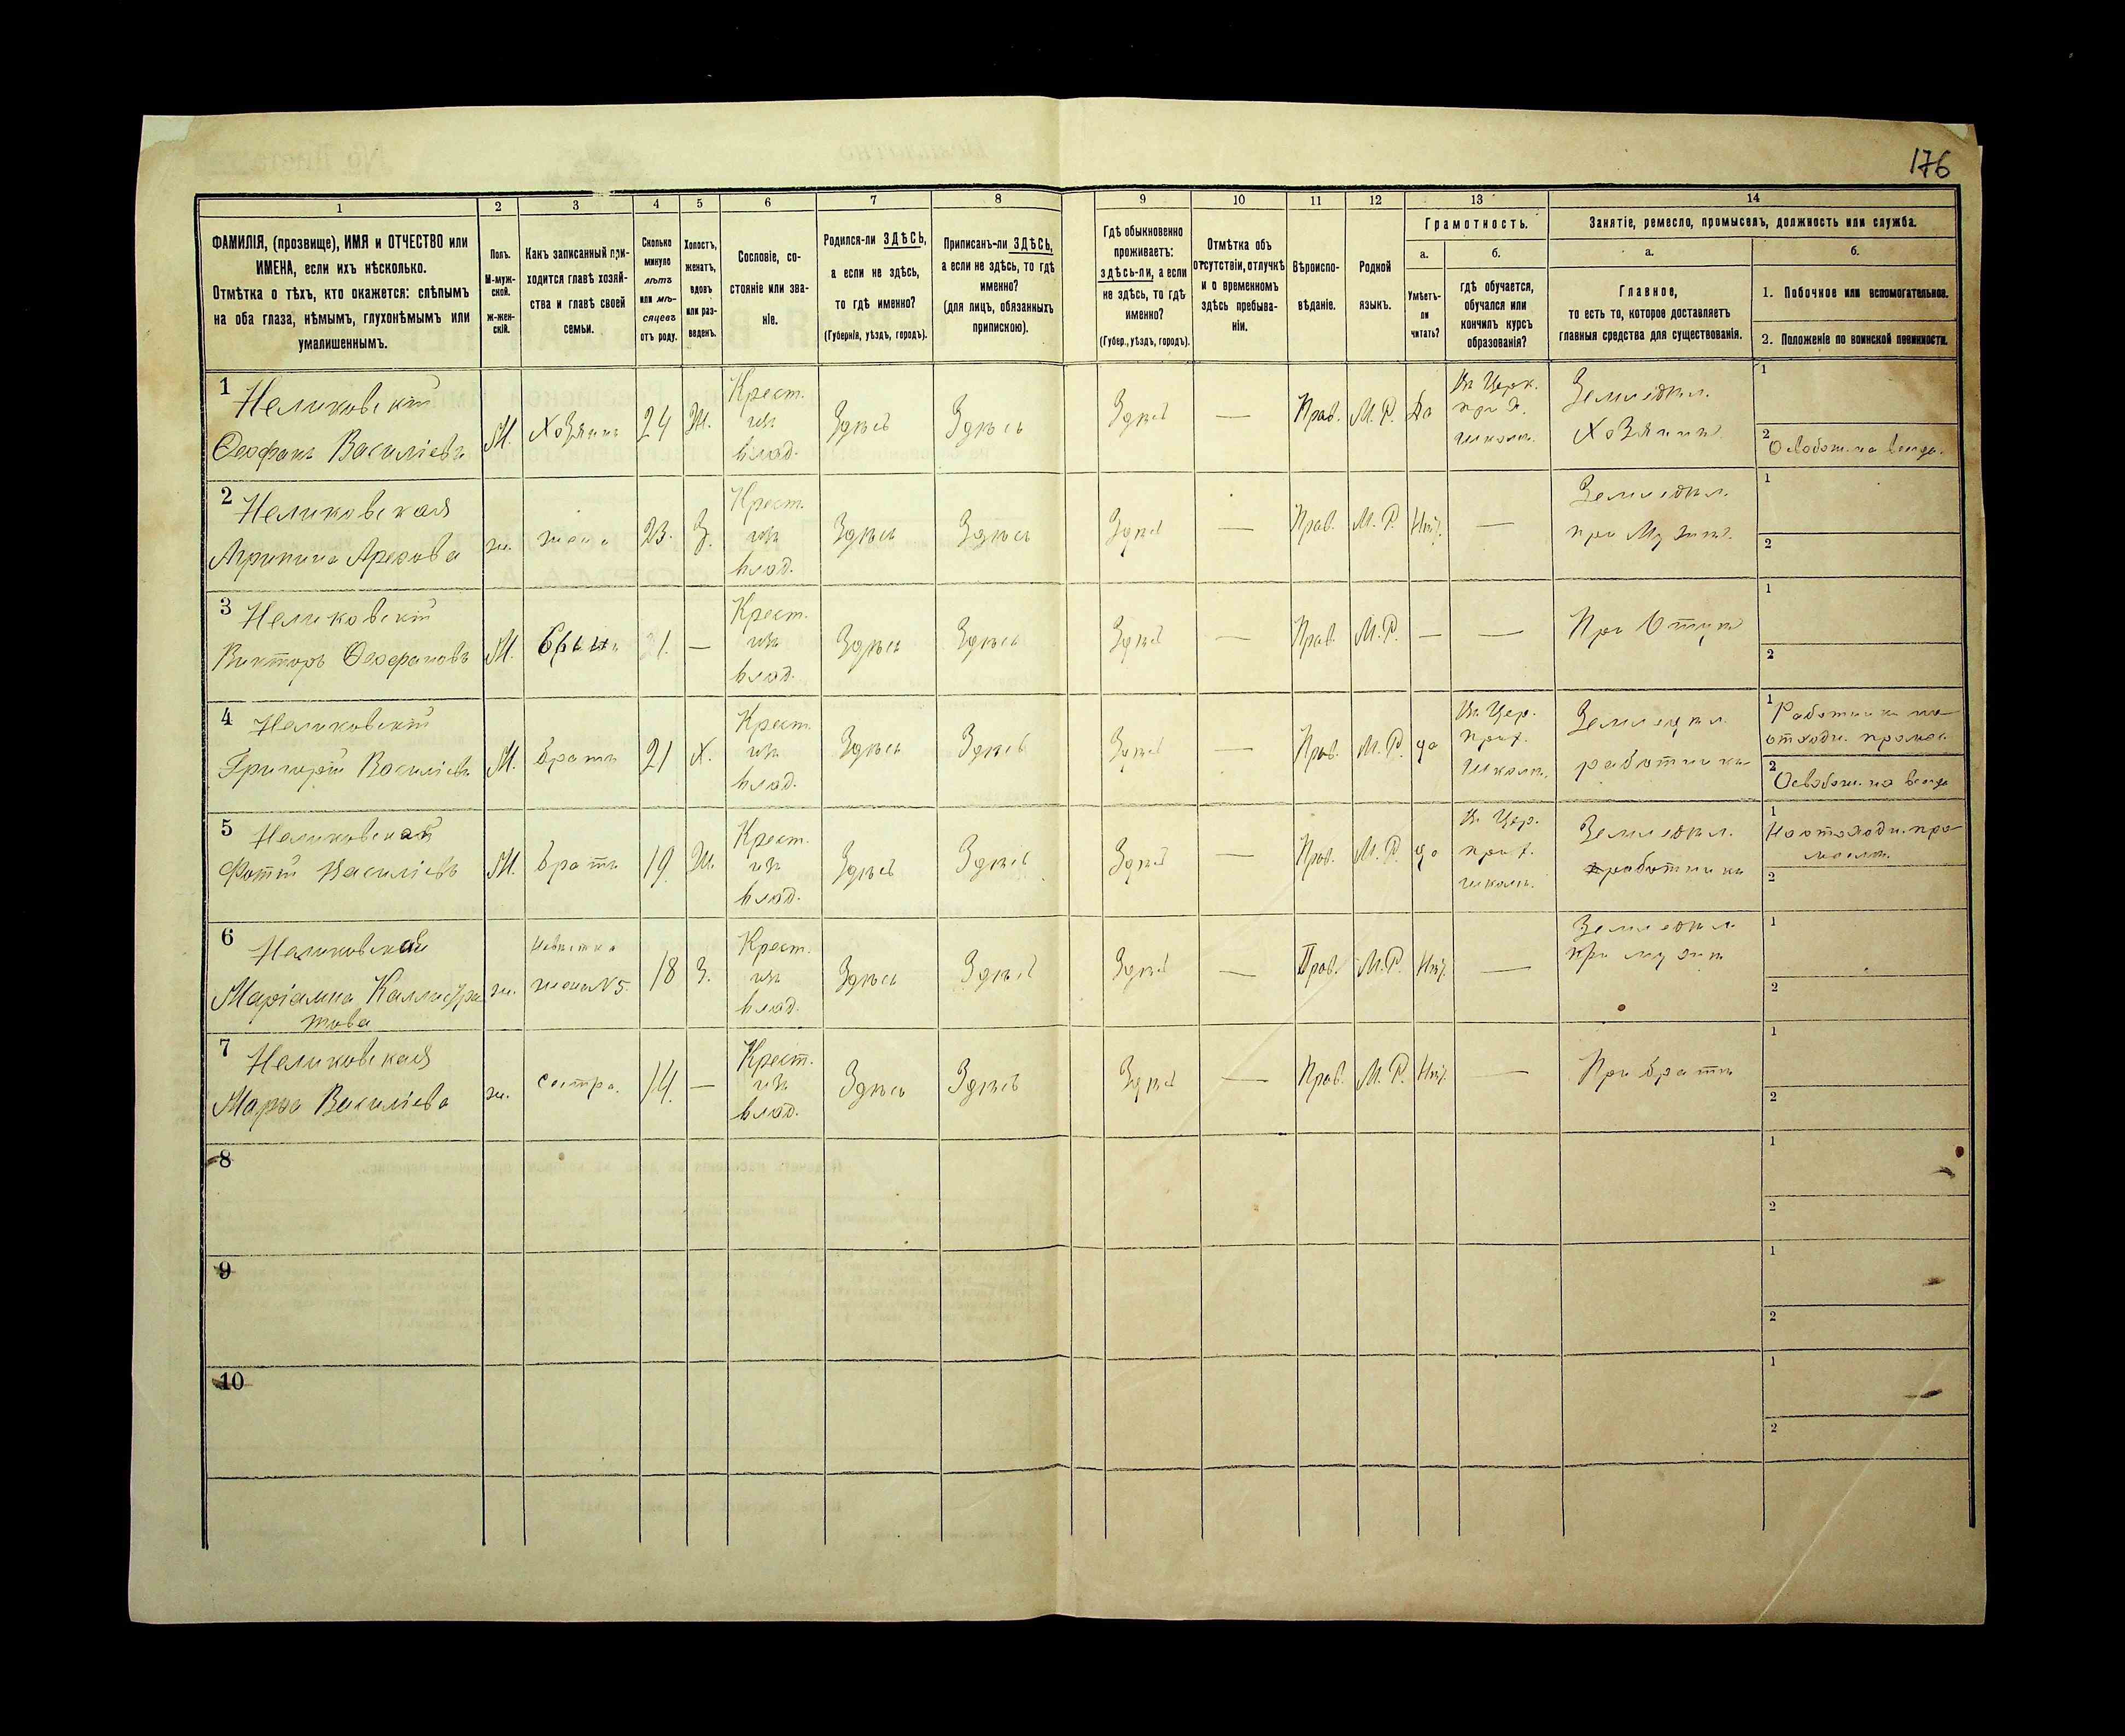 176
1 2 3 4 5 6 7 8 9 10 11 12 13 14
ФАМИЛІЯ, (прозвище), ИМЯ и ОТЧЕСТВО или
ИМЕНА, если ихъ нѣсколько.
Отмѣтка о тѣхъ, кто окажется: слѣпымъ
на оба глаза, нѣмымъ, глухонѣмымъ или
умалишеннымъ.
Полъ.
М-муж-
ской.
Ж-жен-
скій.
Какъ записанный при-
ходится главѣ хозяй-
ства и главѣ своей
семьи.
Сколько
минуло
лѣтъ
или мѣ-
сяцевъ
отъ роду.
Холостъ,
женатъ,
вдовъ
или раз-
веденъ.
Сословіе, со-
стояніе или зва-
ніе.
Родился-ли ЗДѢСЬ,
а если не здѣсь,
то гдѣ именно?
(Губернія, уѣздъ, городъ).
Приписанъ-ли ЗДѢСЬ,
а если не здѣсь, то гдѣ
именно?
(для лицъ, обязанныхъ
припискою).
Гдѣ обыкновенно
проживаетъ:
здѣсь-ли, а если
не здѣсь, то гдѣ
именно?
(Губер., уѣздъ, городъ).
Отмѣтка объ
отсутствіи, отлучкѣ
и о временномъ
здѣсь пребыва-
ніи.
Вѣроиспо-
вѣданіе.
Родной
языкъ.
Грамотность.
а.
Умѣетъ-
ли
читать?
б.
гдѣ обучается,
обучался или
кончилъ курсъ
образованія?
Занятіе, ремесло, промыселъ, должность или служба.
а.
Главное,
то есть то, которое доставляетъ
главныя средства для существованія.
б.
1. Побочное или вспомогательное.
2. Положеніе по воинской повинности.
1
Неликовскій
Ѳеофанъ Василіевъ
М.
Хозяинъ
24
Ж.
Крест.
изъ
влад.
Здѣсь
Здѣсь
Здѣсь
—
Прав.
М. Р.
Да
школѣ.
Земледѣл.
Хозяинъ
1
2
2
Неликовская
Агрипина
ж.
жена
23.
З.
Крест.
изъ
влад.
Здѣсь
Здѣсь
Здѣсь
—
Прав.
М. Р.
Нѣт.
—
Земледѣл.
при Мужѣ
1
2
3
Неликовскій
Викторъ Ѳеофановъ
М.
Сынъ
1.
—
Крест.
изъ
влад.
Здѣсь
Здѣсь
Здѣсь
—
Прав.
М. Р.
—
—
При Отцѣ
1
2
4
Неликовскій
Григорій Василіевъ
М.
братъ
21
Х.
Крест.
изъ
влад.
Здѣсь
Здѣсь
Здѣсь
—
Прав.
М. Р.
да
Въ Цер.
прих.
школѣ.
Земледѣл.
работникъ
1
2
5
Фотій Василіевъ
М.
братъ
19
Ж.
Крест.
изъ
влад.
Здѣсь
Здѣсь
Здѣсь
—
Прав.
М. Р.
да
Въ Цер.
прих.
школѣ.
Земледѣл.
работникъ
1
2
6
Неликовская
Маріамна Каллистра
това
ж.
Невѣстка
жена №5.
18
З.
Крест.
изъ
влад.
Здѣсь
Здѣсь
Здѣсь
—
Прав.
М. Р.
Нѣт.
—
Земледѣл.
при мужѣ
1
2
7
Неликовская
Марфа Василіева
ж.
сестра.
14.
—
Крест.
изъ
влад.
Здѣсь
Здѣсь
Здѣсь
—
Прав.
М. Р.
Нѣт.
—
При братѣ
1
2
8
1
2
9
1
2
10
1
2